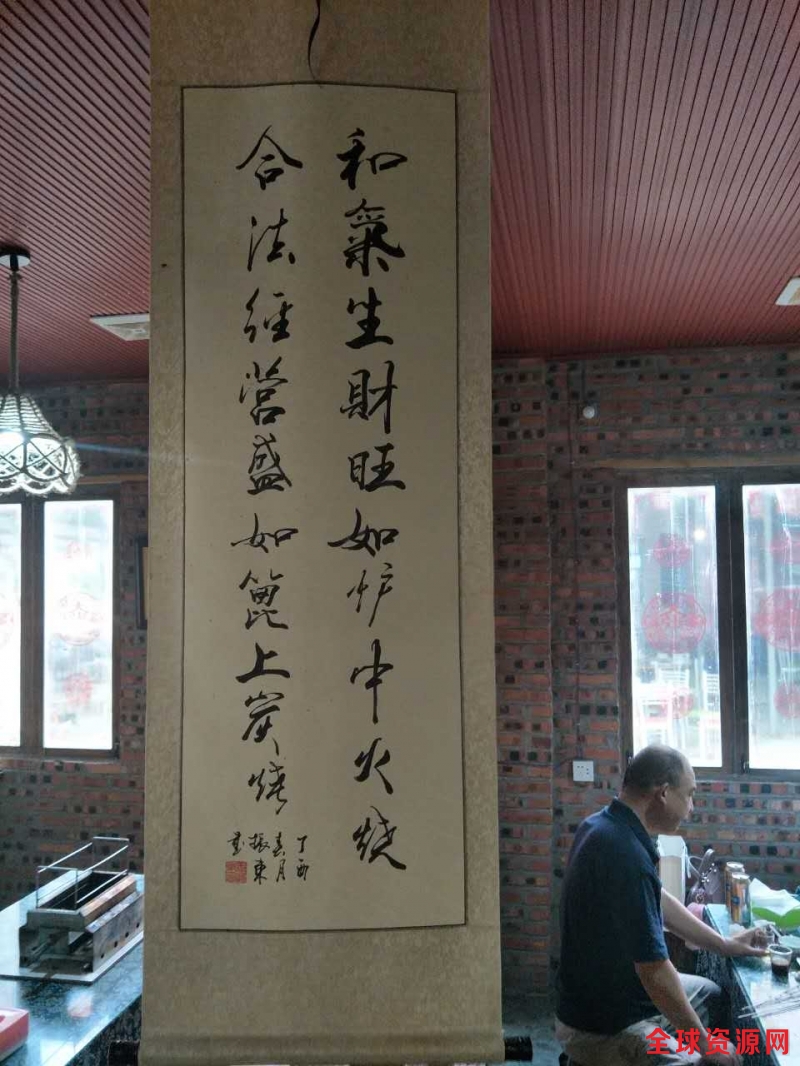 和氣生財旺如炉中火烧
合法经营盛如篦上炭烧
丁酉
春月
振東
书
全球资源网